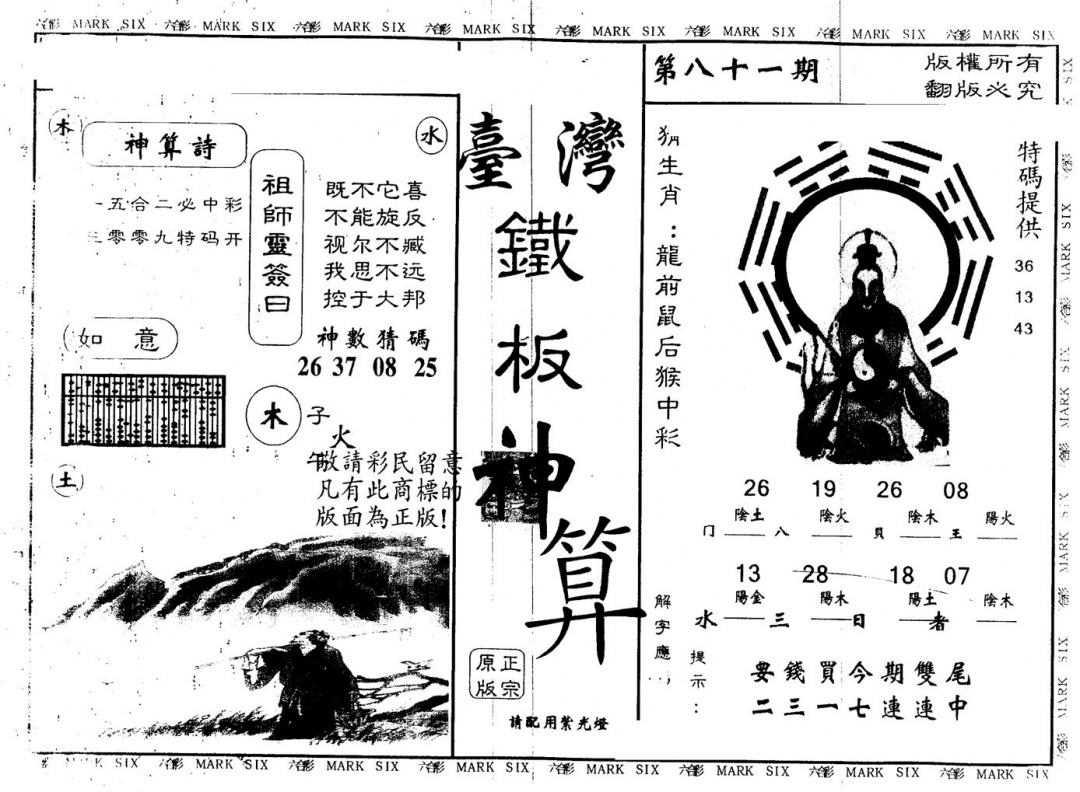 六合彩 MARK SIX 六合彩 MARK SIX 六合彩 MARK SIX 六合彩 MARK SIX 六合彩 MARK SIX 六合彩 MARK SIX 六合彩 MARK SIX 六合彩 MARK SIX
第八十一期
版權所有
翻版必究
木
神算詩
水
一五合二必中彩
三零零九特码开
祖師靈簽曰
既不它喜
不能旋反
视尔不臧
我思不远
控于大邦
神數猜碼
26 37 08 25
如意
木
子
火
午
敬請彩民留意
凡有此商標的
版面為正版!
土
臺灣
鐵板神算
正宗
原版
請配用紫光燈
猜生肖:龍前鼠后猴中彩
特碼提供
36
13
43
26 19 26 08
陰土 陰火 陰木 陽火
八 貝 王
13 28 18 07
陽金 陽木 陽土 陰木
水 三 日 者
解字應
提示:
要錢買今期雙尾
二三一七連連中
MARK SIX 六合彩 MARK SIX 六合彩 MARK SIX 六合彩 MARK SIX 六合彩 MARK SIX
SIX 六合彩 MARK SIX 六合彩 MARK SIX 六合彩 MARK SIX 六合彩 MARK SIX 六合彩 MARK SIX 六合彩 MARK SIX 六合彩 MARK SIX